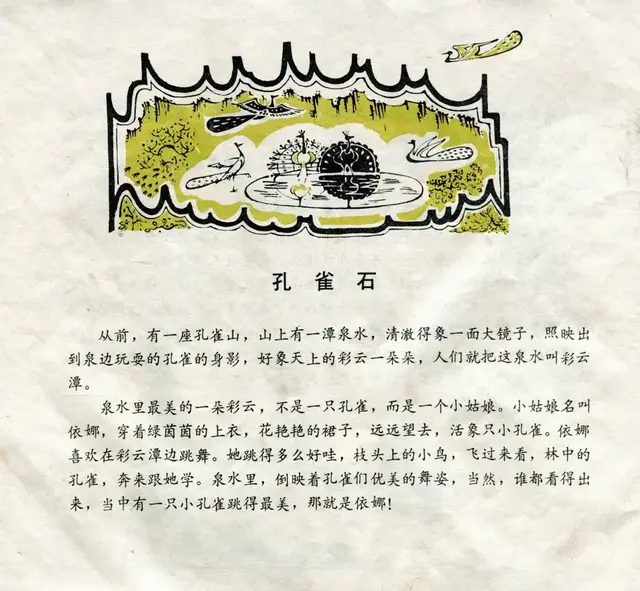 孔雀石
从前，有一座孔雀山，山上有一潭泉水，清澈得象一面大镜子，照映出
到泉边玩耍的孔雀的身影，好象天上的彩云一朵朵，人们就把这泉水叫彩云
潭。
泉水里最美的一朵彩云，不是一只孔雀，而是一个小姑娘。小姑娘名叫
依娜，穿着绿茵茵的上衣，花艳艳的裙子，远远望去，活象只小孔雀。依娜
喜欢在彩云潭边跳舞。她跳得多么好哇，枝头上的小鸟，飞过来看，林中的
孔雀，奔来跟她学。泉水里，倒映着孔雀们优美的舞姿，当然，谁都看得出
来，当中有一只小孔雀跳得最美，那就是依娜！